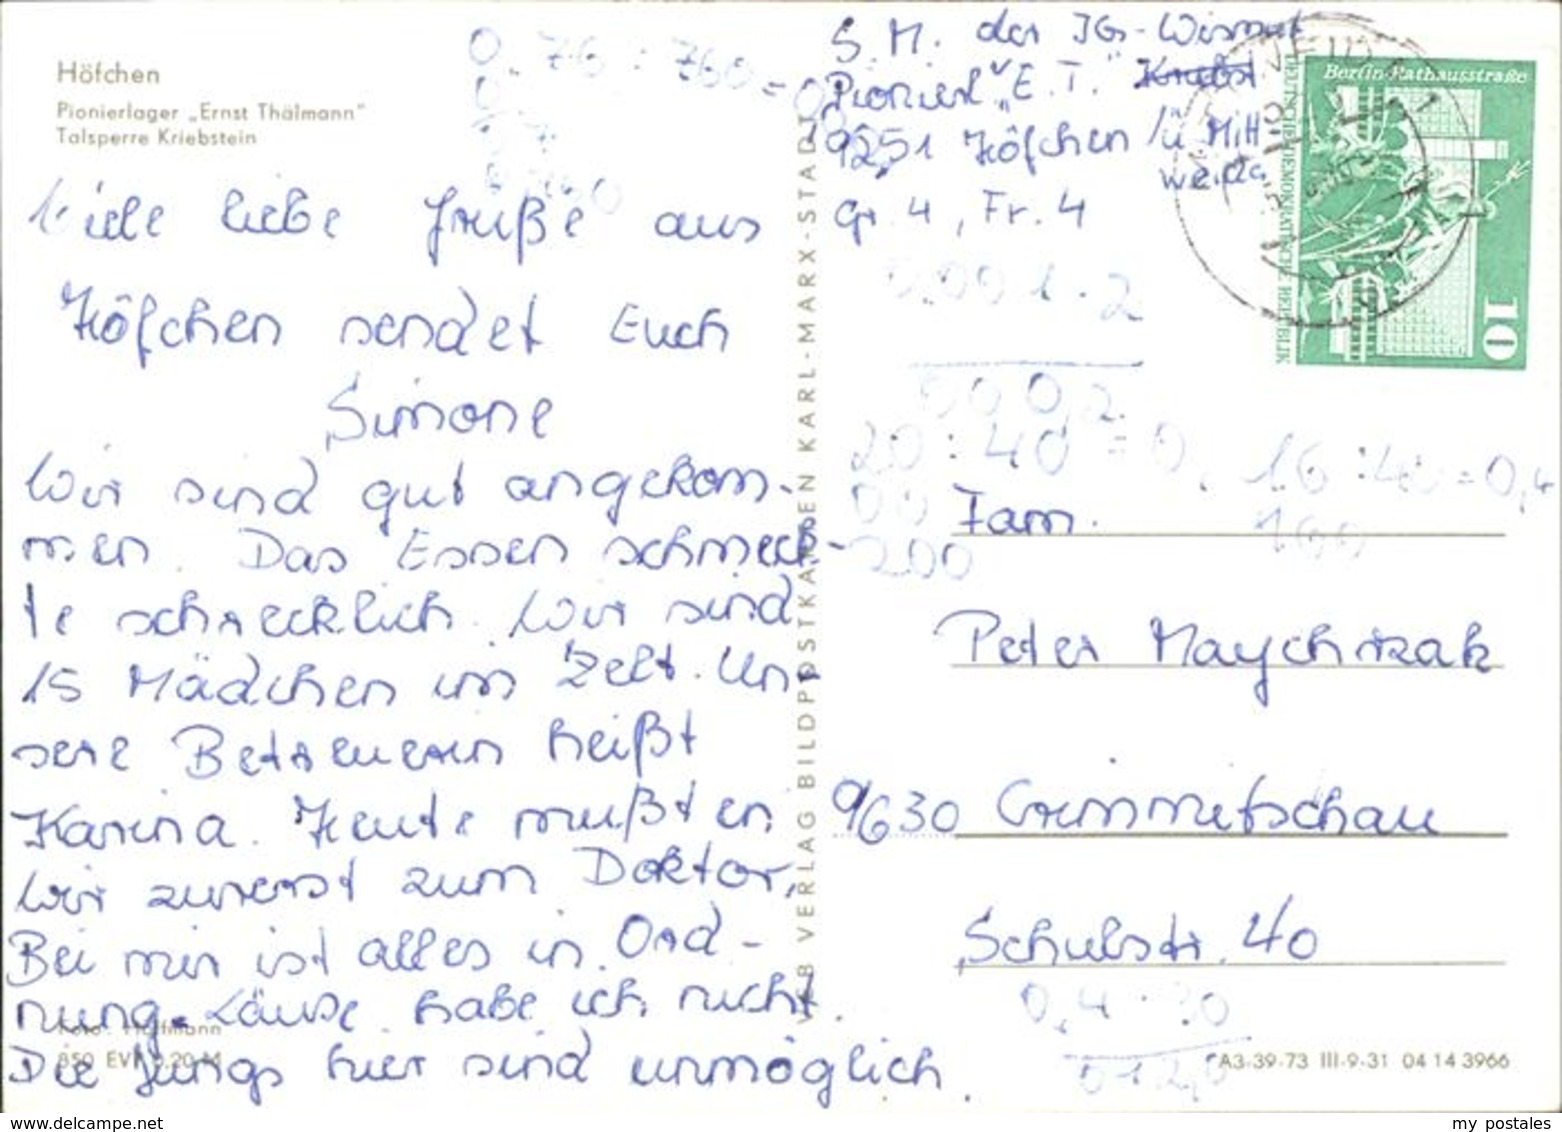 Höfchen
Pionierlager „Ernst Thälmann"
Talsperre Kriebstein
Viele liebe Grüße aus
Höfchen sendet Euch
Simone
Wir sind gut angekom-
men. Das Essen schmeck-
te schrecklich. Wir sind
15 Mädchen im Zelt. Un-
sere Betreuerin heißt
Karina. Heute mußten
wir zuerst zum Doktor,
Bei mir ist alles in Ord-
nung. Läuse habe ich nicht.
Die Jungs hier sind unmöglich.
Foto: Hoffmann
850 EVP 0,20 M
VEB VERLAG BILDPOSTKARTEN KARL-MARX-STADT
S. M. der IG-Wismut
Pionierl. „E. T."
9251 Höfchen ü Mitt
weida
Gr. 4, Fr. 4
Berlin-Rathausstraße
DEUTSCHE DEMOKRATISCHE REPUBLIK
10
0,76 : 760 = 0
0,001 · 2
000,2
20 : 40 = 0,
00
200
16 : 40 = 0,4
160
Fam.
Peter Maychrzak
9630 Crimmitschau
Schulstr. 40
0,4 · 30
012,0
A3-39-73 III-9-31 04 14 3966
www.delcampe.net
my_postales